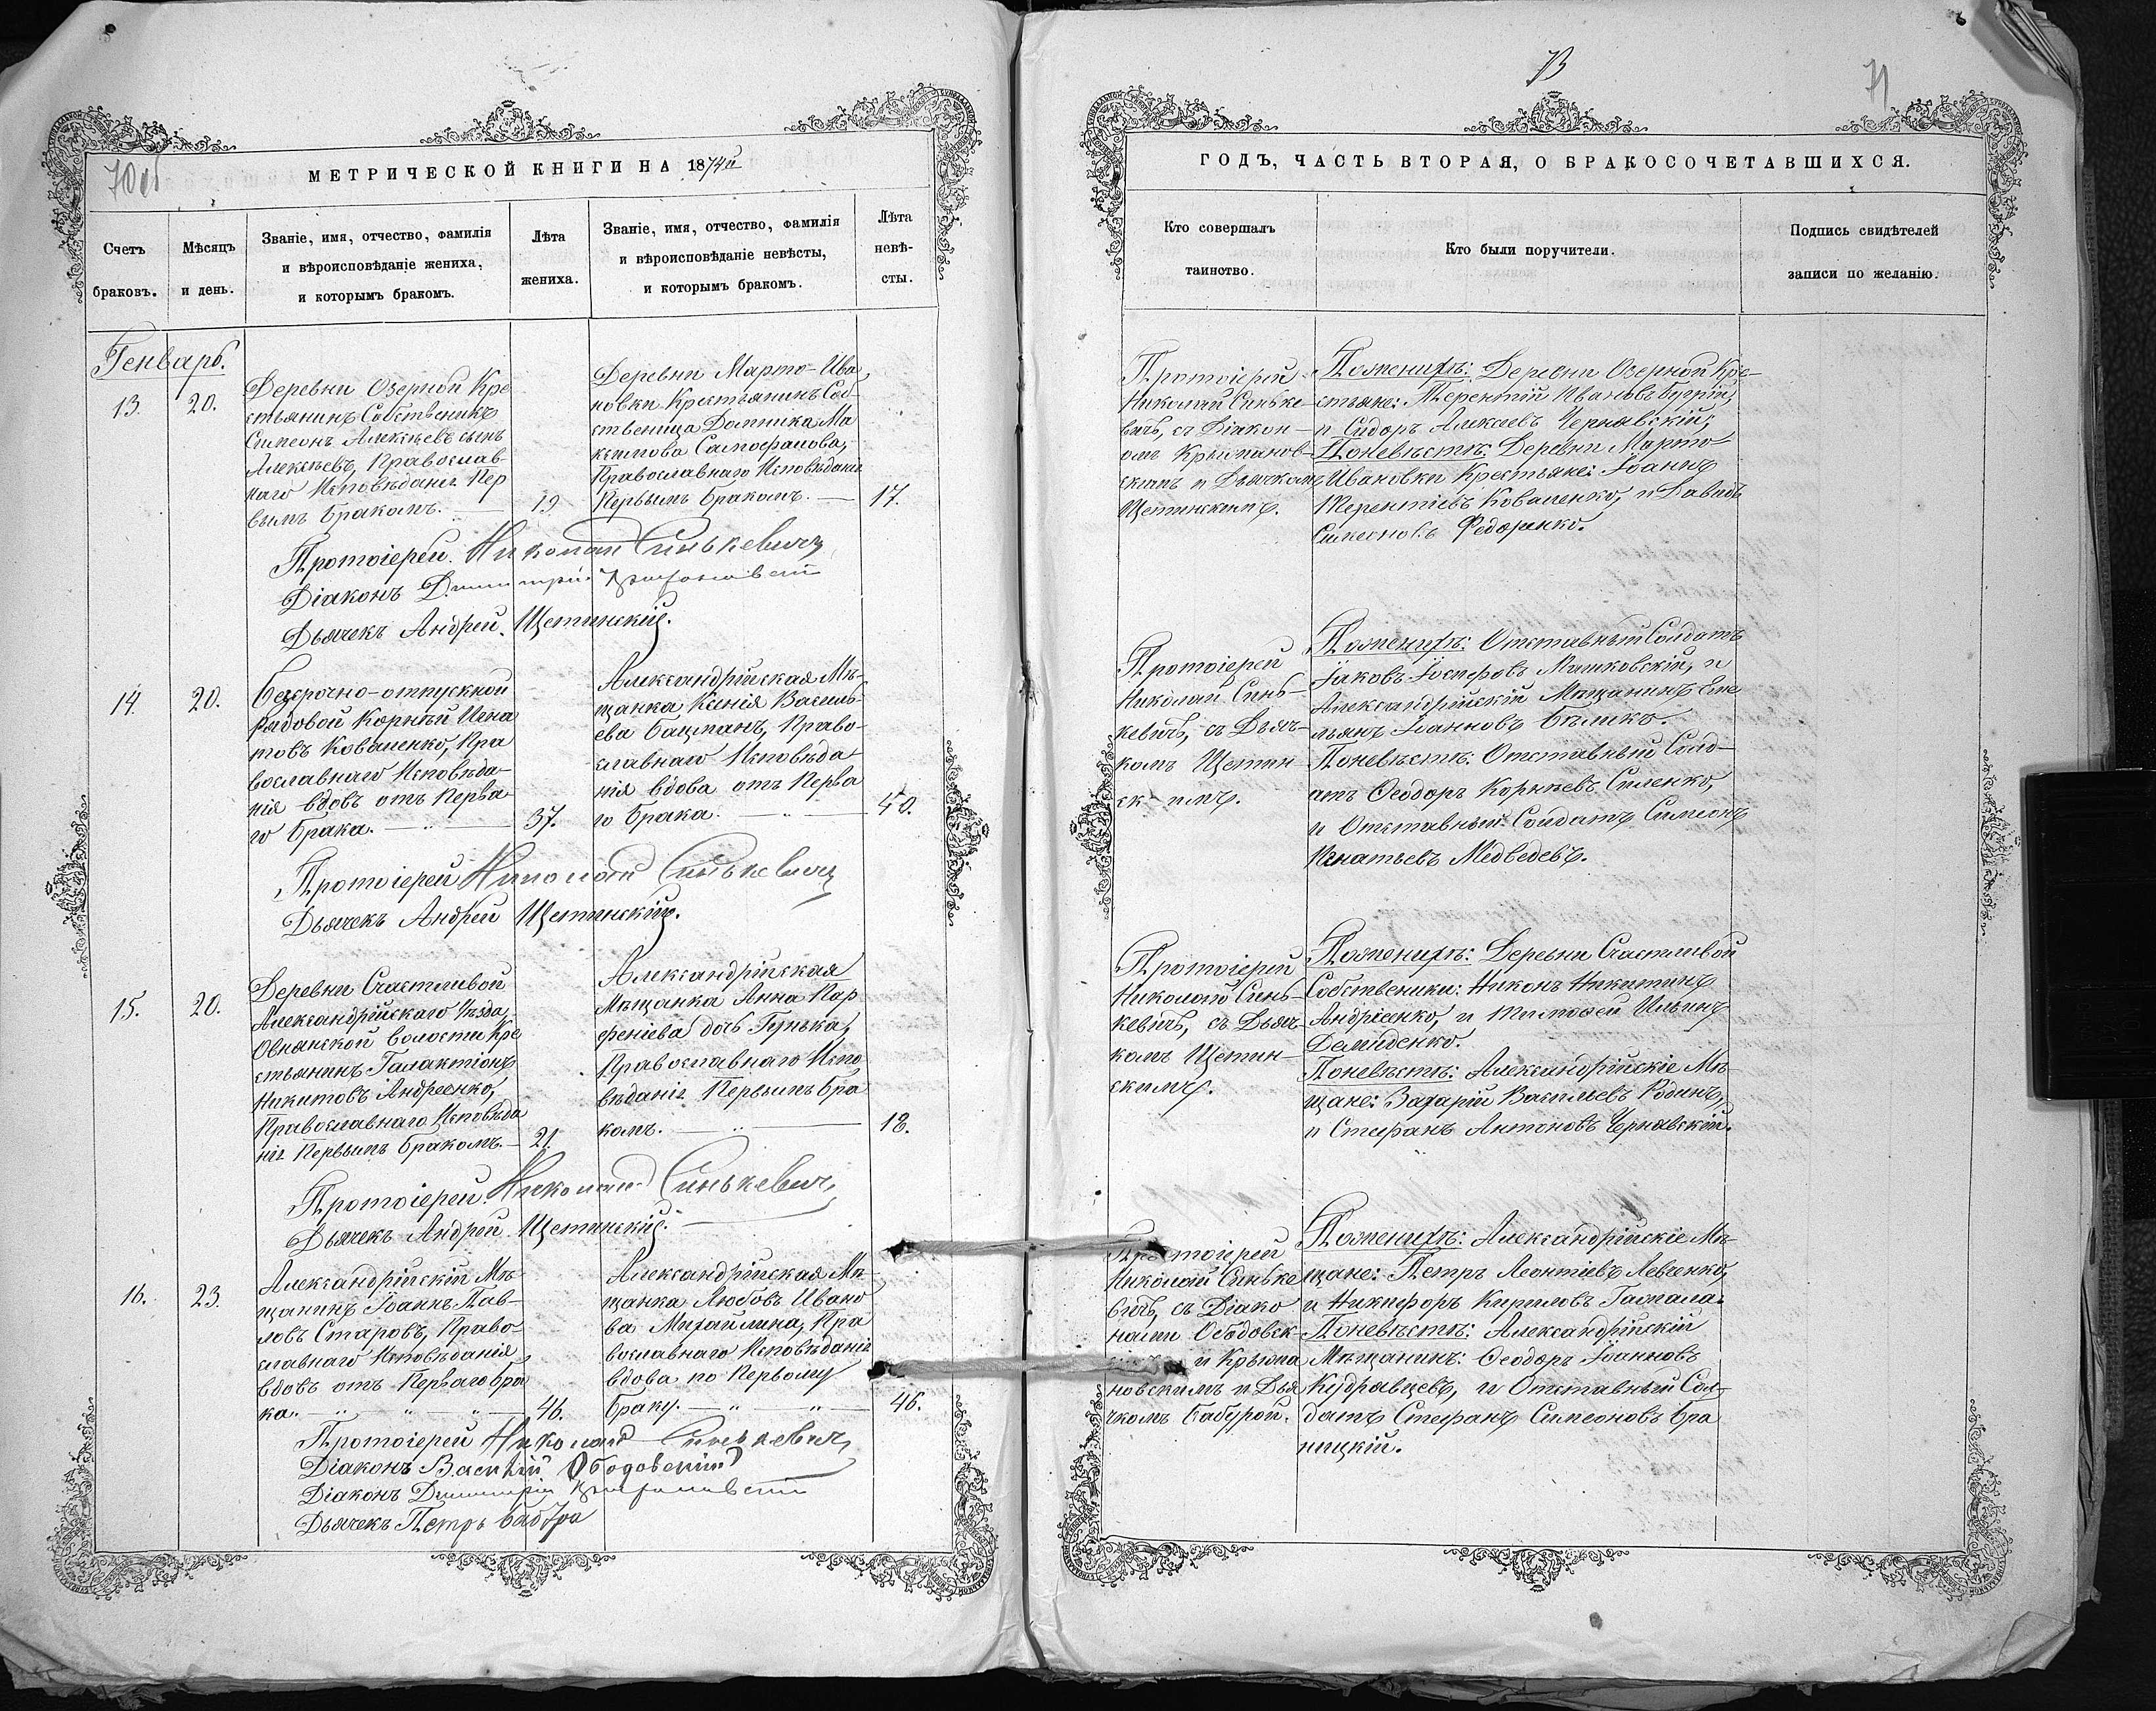 70 об
МЕТРИЧЕСКОЙ КНИГИ НА 1874й
Счетъ
браковъ.
Мѣсяцъ
и день.
Званіе, имя, отчество, фамилія
и вѣроисповѣданіе жениха,
и которымъ бракомъ.
Лѣта
жениха.
Званіе, имя, отчество, фамилія
и вѣроисповѣданіе невѣсты,
и которымъ бракомъ.
Лѣта
невѣ-
сты.
Генварь.
13.
20.
Деревни Озерной Кре
стьянинъ Собственникъ
Симеонъ Алексѣевъ сынъ
Алексѣевъ, Православ-
наго Исповѣданія Пер
вымъ бракомъ.
19
Деревни Марто-Ива
новки Крестьянинъ Соб-
ственница Домника Ма
ксимова Самофалова,
Православнаго Исповѣданія
Первымъ бракомъ.
17.
Протоіерей Николай Синькевичъ
Діаконъ Димитрій Крыжановскій
Дьячекъ Андрей Щетинскій.
14.
20.
Безсрочно-отпускной
рядовой Корнѣй Игна
товъ Коваленко, Пра
вославнаго Исповѣда-
нія вдовъ отъ Перва
го брака.
37.
Александрійская Мѣ-
щанка Ксенія Василь-
ева Бацманъ, Право-
славнаго Исповѣда
нія вдова отъ Перва
го брака.
40.
Протоіерей Николай Синькевичъ
Дьячекъ Андрей Щетинскій.
15.
20.
Деревни Счастливой
Александрійскаго Уѣзда,
Овнянской волости Кре
стьянинъ Галактіонъ
Никитовъ Андреенко,
Православнаго Исповѣда
нія Первымъ бракомъ.
21.
Александрійская
Мѣщанка Анна Пар
феніева дочь Гунька,
Православнаго Испо
вѣданія Первымъ бра
комъ.
18.
Протоіерей Николай Синькевичъ
Дьячекъ Андрей Щетинскій.
16.
23.
Александрійскій Мѣ-
щанинъ Іоаннъ Пав-
ловъ Старовъ, Право-
славнаго Исповѣданія
вдовъ отъ Перваго бра
ка.
46.
Александрійская Мѣ-
щанка Любовь Ивано
ва Михайлина, Пра
вославнаго Исповѣданія
вдова по Первому
браку.
46.
Протоіерей Николай Синькевичъ
Діаконъ Василій Ободовскій
Діаконъ Димитрій Крыжановскій
Дьячекъ Петръ Бабура
73
71
ГОДЪ, ЧАСТЬ ВТОРАЯ, О БРАКОСОЧЕТАВШИХСЯ.
Кто совершалъ
таинство.
Кто были поручители.
Подпись свидѣтелей
записи по желанію.
Протоіерей
Николай Синьке-
вичъ, съ Діакон-
омъ Крыжанов-
скимъ и Дьячкомъ
Щетинскимъ.
По женихѣ: Деревни Озерной Кре-
стьяне: Терентій Ивановъ
и Сидоръ Алексѣевъ Чернявскій;
По невѣстѣ: Деревни Марто
Ивановки Крестьяне: Іоаннъ
Терентіевъ Коваленко, и Давидъ
Симеоновъ Федоренко.
Протоіерей
Николай Синь-
кевичъ, съ Дьяч-
комъ Щетин
скимъ.
По женихѣ: Отставный Солдатъ
Іаковъ Іосифовъ Машковскій, и
Александрійскій Мѣщанинъ Еме
льянъ Іоанновъ Бѣлико.
По невѣстѣ: Отставный Солд-
атъ Ѳеодоръ Корнѣевъ Силенко,
и Отставный Солдатъ Симеонъ
Игнатьевъ Медведевъ.
Протоіерей
Николай Синь-
кевичъ, съ Дьяч-
комъ Щетин-
скимъ.
По женихѣ: Деревни Счастливой
Собственики: Никонъ Никитинъ
Андріенко, и Тимофей Ильинъ
Демиденко.
По невѣстѣ: Александрійскіе Мѣ-
щане: Захарій Васильевъ Родинъ,
и Стефанъ Антоновъ Чернявскій.
Протоіерей
Николай Синьке
вичъ, съ Діако
нами Ободовск-
и Крыжа
новскимъ и Дья
чкомъ Бабурой.
По женихѣ: Александрійскіе Мѣ-
щане: Петръ Леонтіевъ Левченко,
и Никифоръ Кириловъ Гаспала.
По невѣстѣ: Александрійскій
Мѣщанинъ: Ѳеодоръ Іоанновъ
Кудрявцевъ, и Отставный Сол-
датъ Стефанъ Симеоновъ Бра
ницкій.